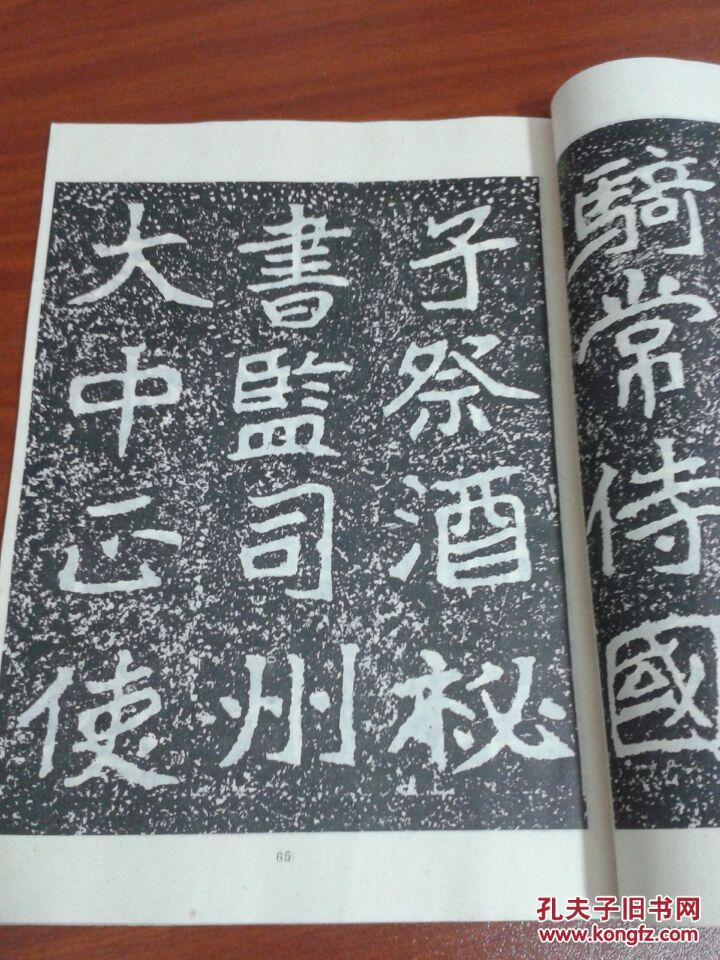 騎常侍國
子祭酒秘
書監司州
大中正使
65
孔夫子旧书网
www.kongfz.com